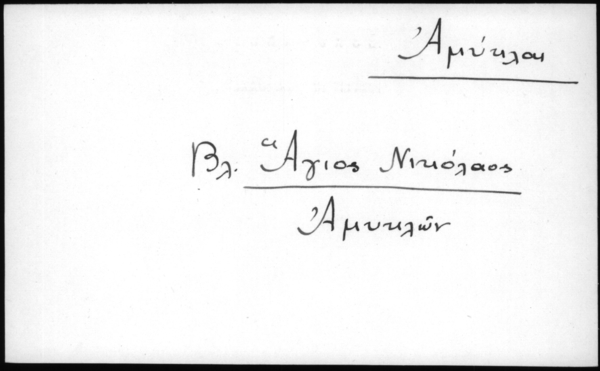 Ἀμύκλαι
Βλ. Ἅγιος Νικόλαος
Ἀμυκλῶν